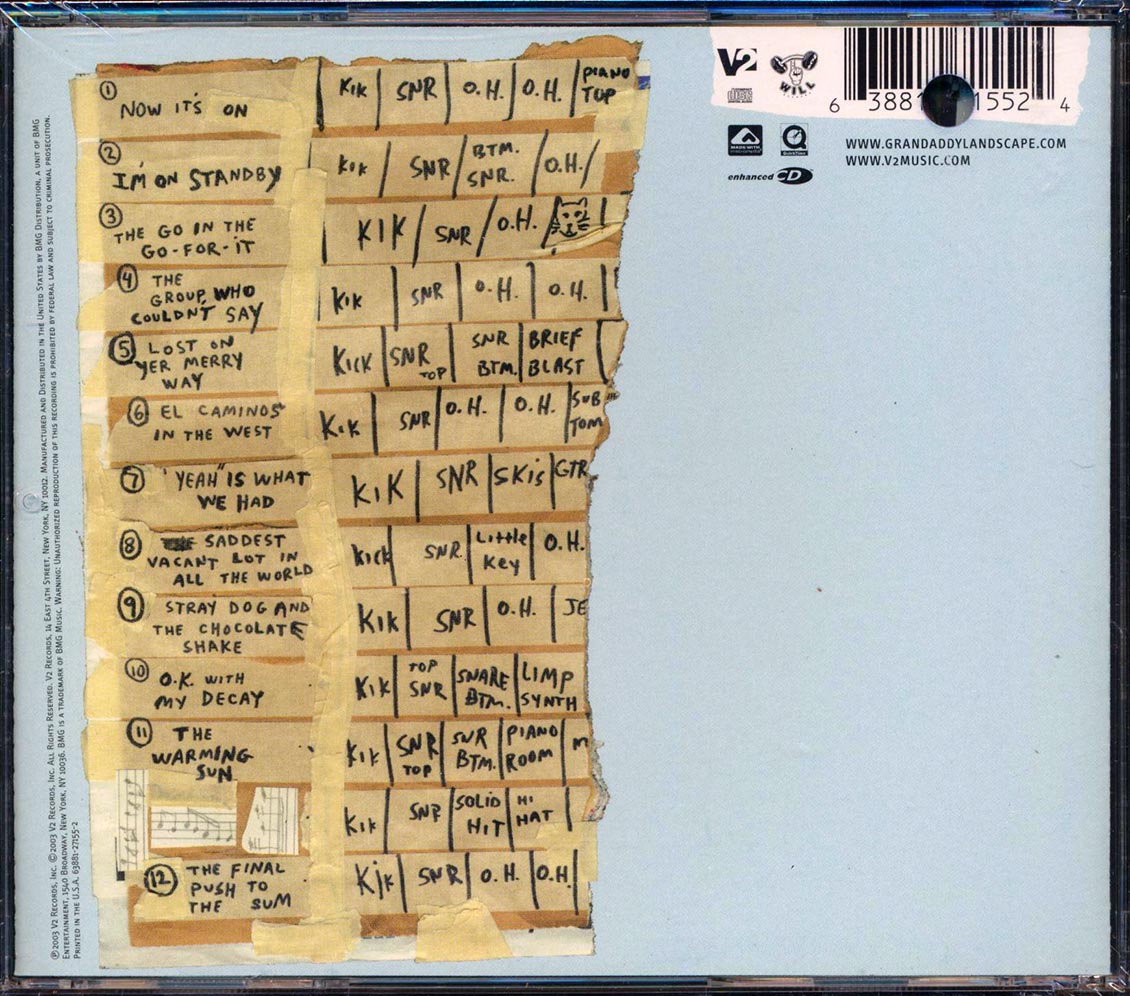 ① NOW IT'S ON | KiK | SNR | O.H. | O.H. | PIANO TOP
② I'M ON STANDBY KiK / SNR / BTM. SNR. / O.H. /
③ THE GO IN THE
GO-FOR-IT KIK / SNR / O.H. /
④ THE
GROUP WHO
COULDN'T SAY KiK | SNR | O.H. | O.H. |
⑤ LOST ON
YER MERRY
WAY KICK | SNR TOP | SNR BTM. | BRIEF BLAST |
⑥ EL CAMINOS
IN THE WEST KiK | SNR | O.H. | O.H. | SUB TOM
⑦ "YEAH" IS WHAT
WE HAD KiK | SNR | SKiS | GTR
⑧ SADDEST
VACANT LOT IN
ALL THE WORLD kick | SNR | Little Key | O.H.
⑨ STRAY DOG AND
THE CHOCOLATE
SHAKE KiK | SNR | O.H. | JE
⑩ O.K. WITH
MY DECAY KiK | TOP SNR | SNARE BTM. | LIMP SYNTH
⑪ THE
WARMING
SUN KiK | SNR TOP | SNR BTM. | PIANO ROOM | M
KiK | SNR | SOLID HIT | HI HAT |
⑫ THE FINAL
PUSH TO
THE SUM KiK | SNR | O.H. | O.H. |
V2
WILL
6 3881 1552 4
WWW.GRANDADDYLANDSCAPE.COM
WWW.V2MUSIC.COM
MADE WITH
QuickTime
enhanced CD
℗ 2003 V2 RECORDS, INC. © 2003 V2 RECORDS, INC. ALL RIGHTS RESERVED. V2 RECORDS, 14 EAST 4TH STREET, NEW YORK, NY 10012. MANUFACTURED AND DISTRIBUTED IN THE UNITED STATES BY BMG DISTRIBUTION, A UNIT OF BMG
ENTERTAINMENT, 1540 BROADWAY, NEW YORK, NY 10036. BMG IS A TRADEMARK OF BMG MUSIC. WARNING: UNAUTHORIZED REPRODUCTION OF THIS RECORDING IS PROHIBITED BY FEDERAL LAW AND SUBJECT TO CRIMINAL PROSECUTION.
PRINTED IN THE U.S.A. 63881-27155-2